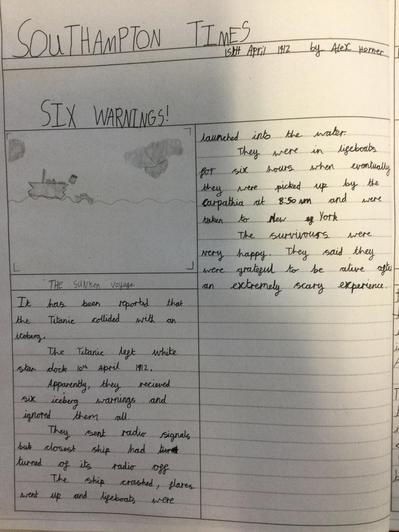 SOUTHAMPTON TIMES
15th April 1912 by Alex Horner
SIX WARNINGS!
THE SUNKen Voyage
It has been reported that
the Titanic collided with an
iceberg.
The Titanic left white
star dock 10th April 1912.
Apparently, they recieved
six iceberg warnings and
ignored them all
They sent radio signals
but closest ship had
turned of its radio off
The ship crashed, flares
went up and lifeboats were
launched into the water
They were in lifeboats
for six hours when eventually
they were picked up by the
Carpathia at 8:50 am and were
taken to New York
The survivours were
very happy. They said they
were grateful to be alive after
an extremely scary experience.